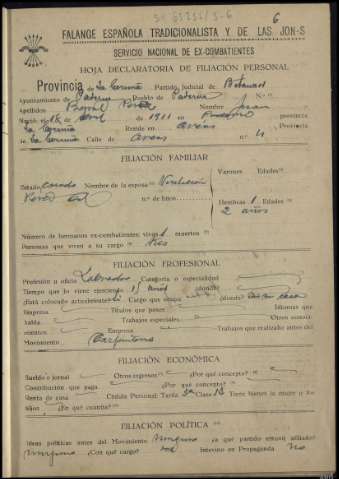 6
FALANGE ESPAÑOLA TRADICIONALISTA Y DE LAS JON-S
SERVICIO NACIONAL DE EX-COMBATIENTES
HOJA DECLARATORIA DE FILIACIÓN PERSONAL
Provincia de La Coruña Partido Judicial de Betanzos
Ayuntamiento de Paderne Pueblo de Paderne
Apellidos Nombre Juan
Nació 18 de Abril de 1911 en provincia
La Coruña Reside en Areas Provincia
La Coruña Calle de Areas n.º 4
FILIACIÓN FAMILIAR
Estado casado Nombre de la esposa Purificación
n.º de hijos
Varones Edades
Hembras 1 Edades
2 años
Número de hermanos ex-combatientes vivos muertos
Personas que viven a su cargo tres
FILIACIÓN PROFESIONAL
Profesión u oficio Labrador Categoría o especialidad
Tiempo que lo viene ejerciendo 15 años dónde
¿Está colocado actualmente? si Cargo que ocupa ¿dónde? casa
Empresa Títulos que posee Idiomas que
habla Trabajos especiales Otros conoci-
mientos Empresa Trabajos que realizaba antes del
Movimiento Carpintero
FILIACIÓN ECONÓMICA
Sueldo o jornal Otros ingresos ¿Por qué concepto?
Contribución que paga ¿Por qué concepto?
Renta de casa Cédula Personal: Tarifa Clase 13 Tiene bienes la mujer o los
hijos ¿En qué cuantía?
FILIACIÓN POLÍTICA
Ideas políticas antes del Movimiento Ninguna ¿a qué partido estuvo afiliado?
Ninguno ¿Con qué cargo? Intervino en Propaganda No